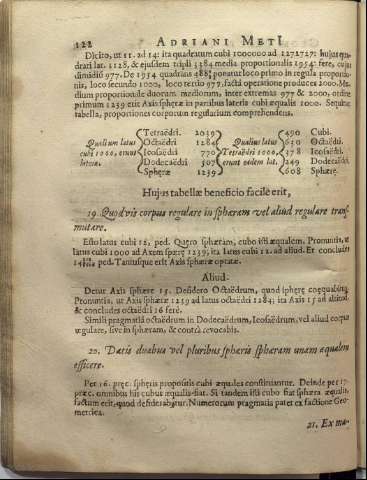 122 ADRIANI METI
Dicito, ut 11. ad 14: ita quadratum cubi 1000000 ad 1272727: hujus qua-
drati lat. 1128, & ejusdem tripli 3384 media proportionalis 1954: fere, cujus
dimidiũ 977. De 1954 quadrans 488½ ponatur loco primo in regula proportio-
nis, loco secundo 1000, loco tertio 977, factâ operatione produces 2000. Me-
dium proportionale duorum mediorum, inter extremas 977 & 2000, ordine
primum 1239 erit Axis sphæræ in partibus lateris cubi æqualis 1000. Sequitur
tabella, proportiones corporum regularium comprehendens.
Qualium latus cubi 1000, erunt latera.
Tetraëdri. 2039
Octaëdri 1284
Icosaëdri 770
Dodecaëdri 507
Sphæræ 1239
Qualius latus Tetraëdri 1000, erunt eodem lat.
490 Cubi.
630 Octaëdri.
378 Icosaëdri.
249 Dodecaëdri
608 Sphæræ.
Hujus tabellæ beneficio facilè erit,
19. Quodvis corpus regulare in sphæram vel aliud regulare trans-
mutare.
Esto latus cubi 12, ped. Quæro sphæram, cubo isti æqualem. Pronuntia, ut
latus cubi 1000 ad Axem sphæræ 1239, ita latus cubi 12. ad aliud. Et concludes
ped. Tantusque erit Axis sphæræ optatæ.
Aliud.
Detur Axis sphæræ 15. Desidero Octaëdrum, quod sphęrę coęqualis sit.
Pronuntia, ut Axis sphæræ 1239 ad latus octaëdri 1284; ita Axis 15 ad aliud,
& concludes octaëdri 16 ferè.
Simili pragmatiâ octaëdrum in Dodecaëdrum, Icosaëdrum, vel aliud corpus
regulare, sive in sphæram, & contrà revocabis.
20. Datis duabus vel pluribus sphæris sphæram unam æqualem
efficere.
Per 16. pręc. sphęris propositis cubi æquales constituantur. Deinde per 17.
præc. omnibus his cubus æqualis fiat. Si tandem isti cubo fiat sphæra æqualis,
factum erit, quod desiderabatur. Numerorum pragmatia patet ex factione Geo-
metrica.
21. Ex ma-